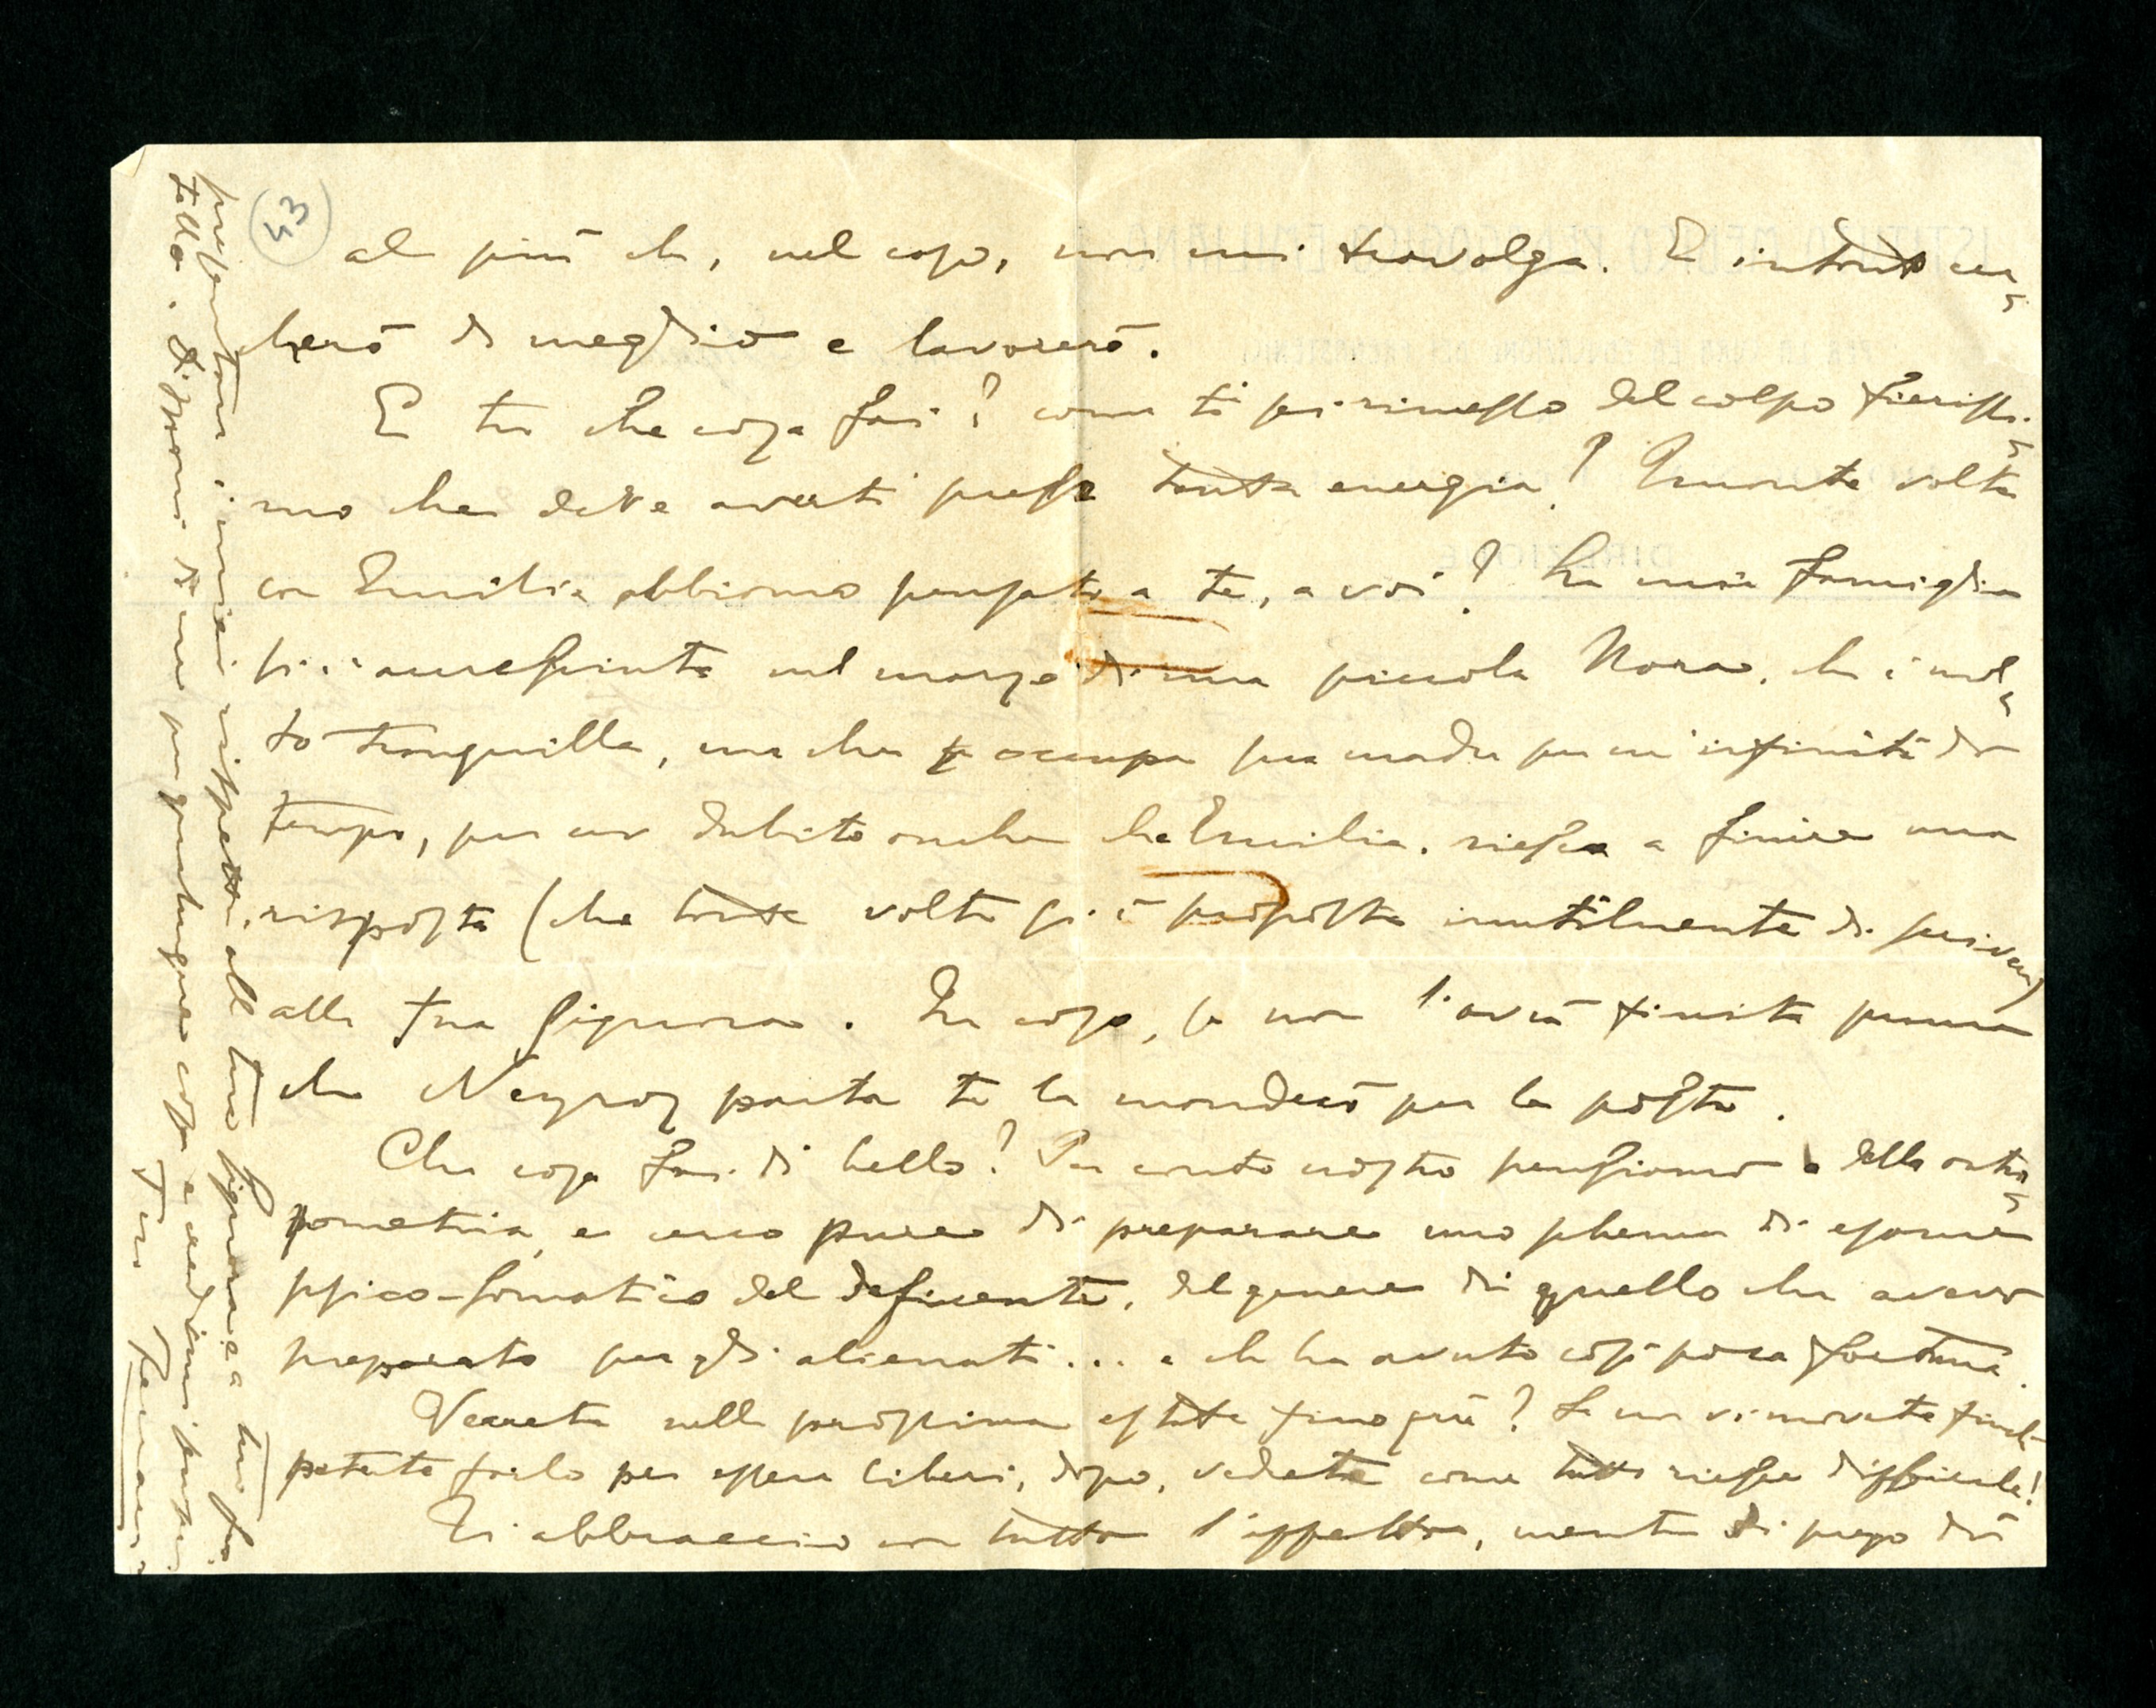 43
al più che, nel caso, non mi travolga. E intanto cer-
cherò di meglio e lavorerò.
E tu che cosa fai? come ti sei rimesso del colpo fierissi-
mo che deve averti presa tanta energia? Quante volte
con Emilia abbiamo pensato a te, a voi! La mia famiglia
si è accresciuta nel marzo di una piccola Nora, che è mol-
to tranquilla, ma che occupa sua madre per un'infinità di
tempo, per cui dubito anche che Emilia riesca a finire una
risposta (che tante volte si è proposta inutilmente di scrivere)
alla tua Signora. In caso, se non l'avrà finita prima
che Neyroz parta te la manderò per la posta.
Che cosa fai di bello? Per conto nostro pensiamo a della antro-
pometria, e cerco pure di preparare uno schema di esame
psico-somatico del deficente, del genere di quello che avevo
preparato per gli alienati... e che ha avuto così poca fortuna.
Verrete nella prossima estate fino giù? Se non vi movete finchè
potete farlo per essere liberi, dopo, vedrete come tutto riesce difficile!
Ti abbraccio con tutto l'affetto, mentre ti prego di
presentare i miei rispetti alla tua Signora e a tuo fra-
tello. Disponi di me per qualunque cosa e credimi sempre
Tuo